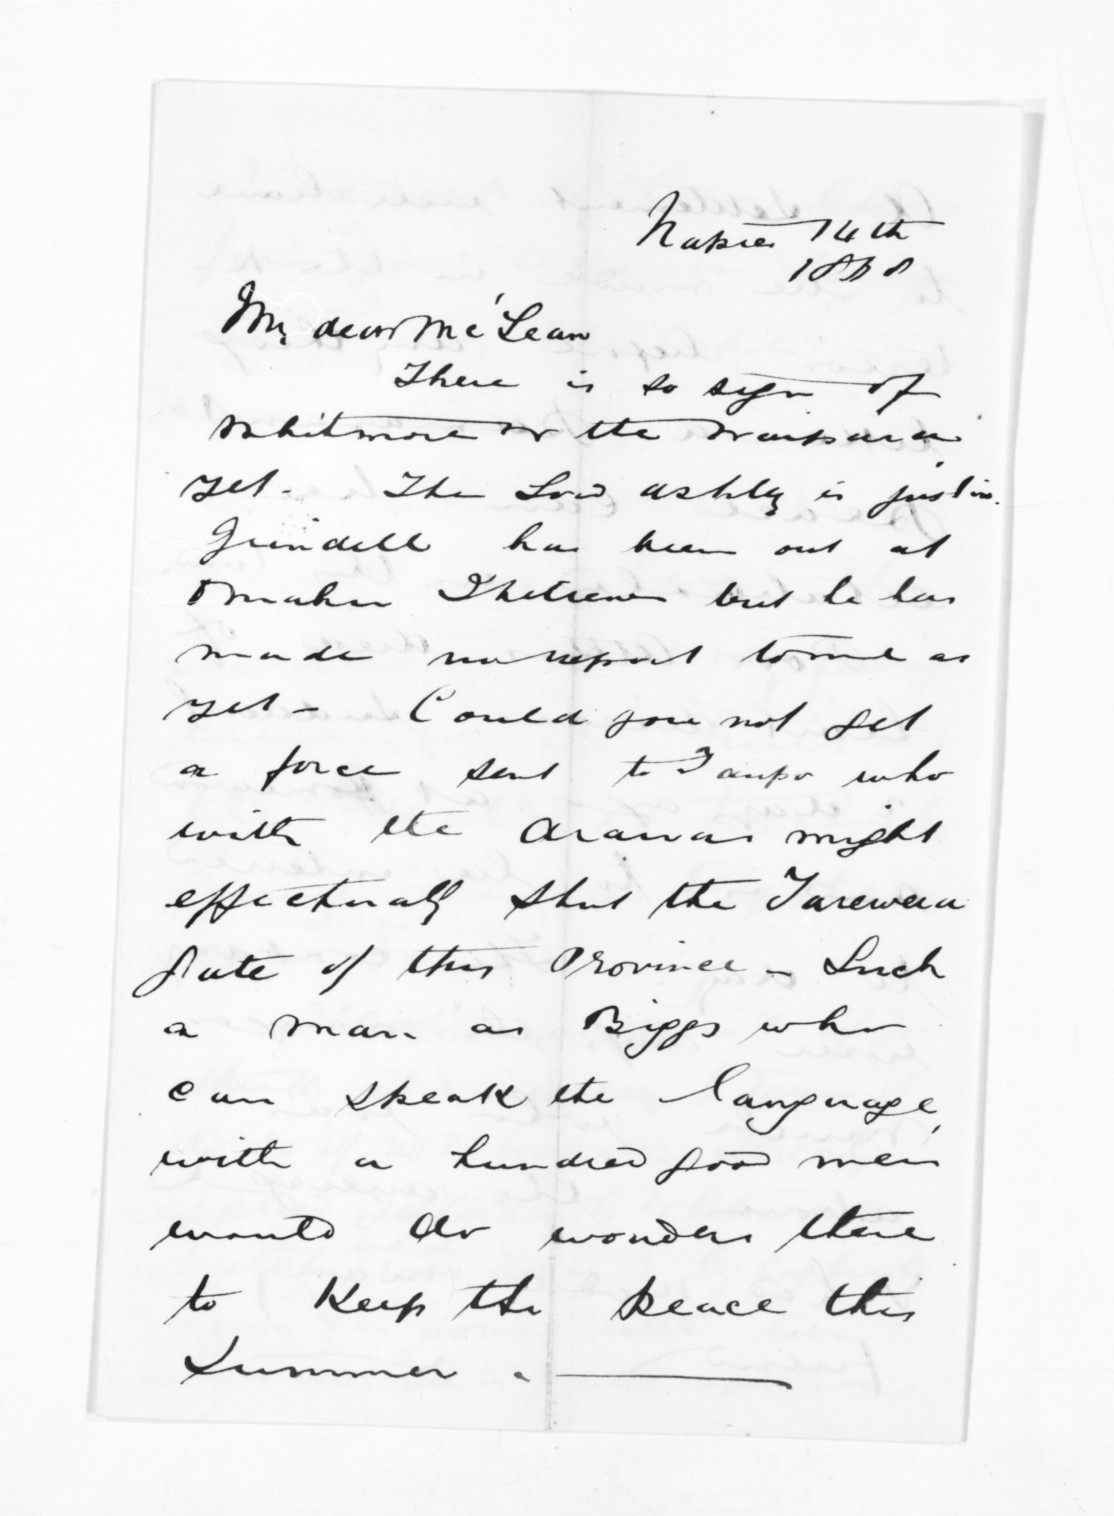 Napier 14th
1868
My dear McLean
There is so sign of
Whitmore or the Waipara
yet. The Lord Ashley is just in.
Grindell has been out at
Omahu but he has
made no report to me as
yet - Could you not get
a force sent to Taupo who
with the Arawas might
effectually shut the Tarewera
gate of this Province - Such
a man as Biggs who
can speak the language,
with a hundred good men
would do wonders there
to keep the peace this
summer.